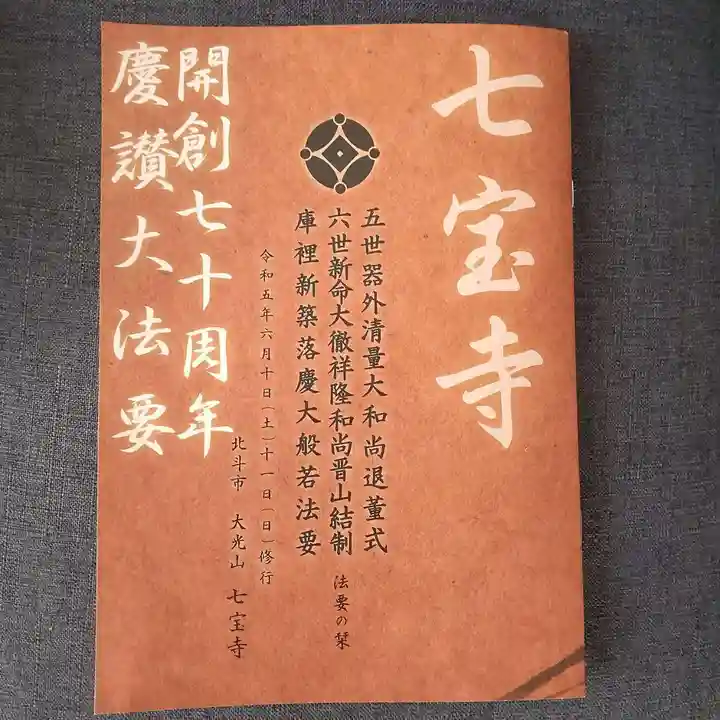 七宝寺
五世器外清量大和尚退董式
六世新命大徹祥隆和尚晋山結制
法要の栞
庫裡新築落慶大般若法要
令和五年六月十日(土)十一日(日)修行
北斗市 大光山 七宝寺
開創七十周年
慶讃大法要